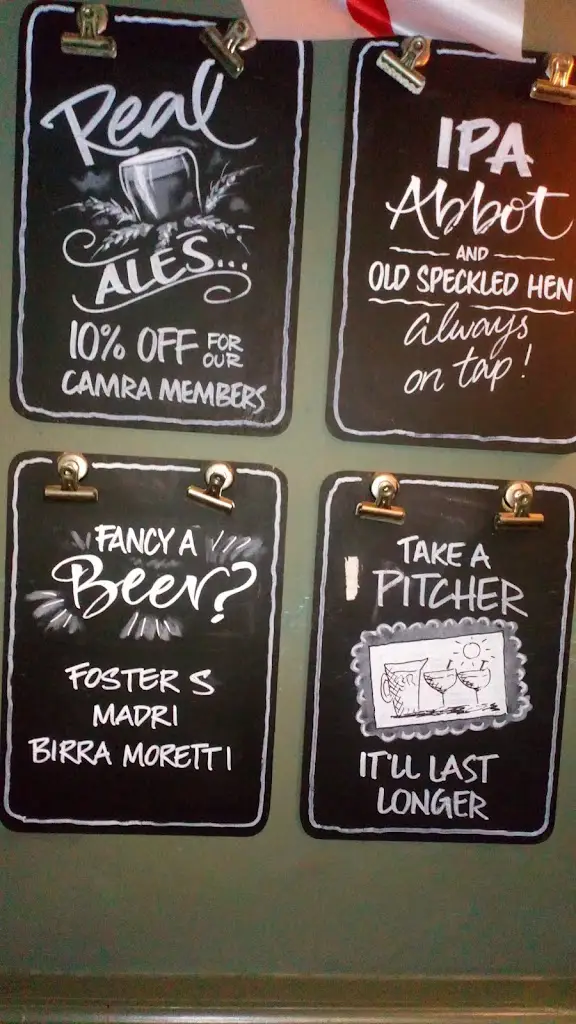 Real
ALES...
10% OFF FOR OUR
CAMRA MEMBERS
IPA
Abbot
AND
OLD SPECKLED HEN
always
on tap!
FANCY A
Beer?
FOSTER S
MADRI
BIRRA MORETTI
TAKE A
PITCHER
IT'LL LAST
LONGER